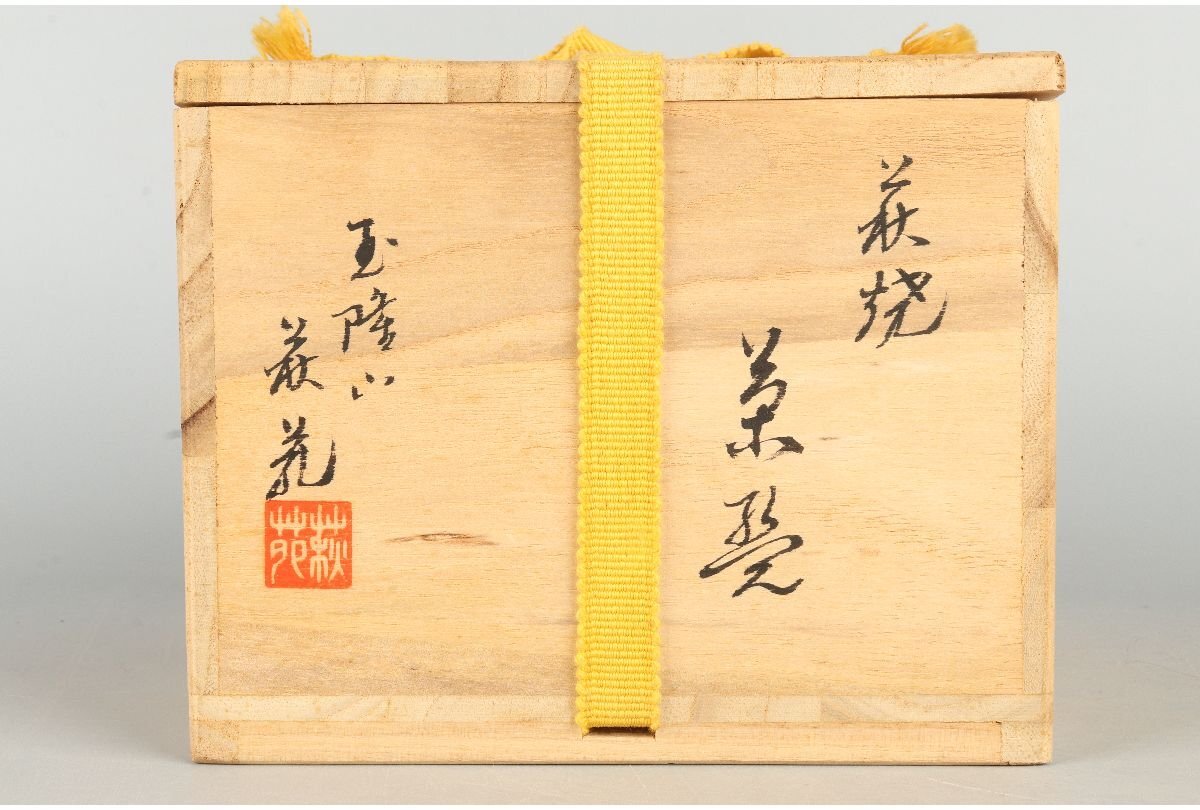 萩焼
茶碗
玉隆山
萩苑
萩苑